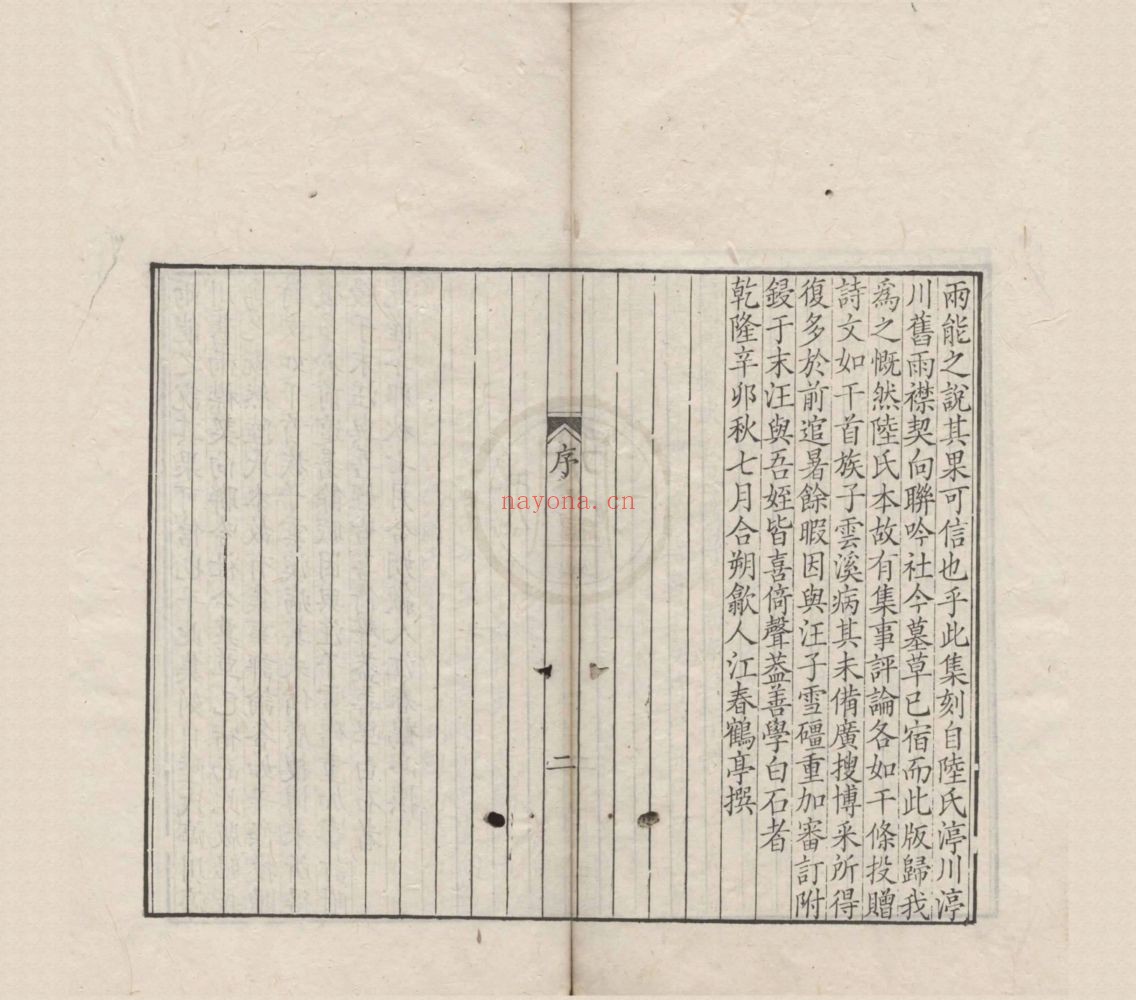 兩能之說其果可信也乎此集刻自陸氏渟川渟
川舊雨襟契向聯吟社今墓草已宿而此版歸我
爲之慨然陸氏本故有集事評論各如干條投贈
詩文如干首族子雲溪病其未備廣搜博采所得
復多於前逭暑餘暇因與汪子雪礓重加審訂附
鋟于末汪與吾姪皆喜倚聲葢善學白石者
乾隆辛卯秋七月合朔歙人江春鶴亭撰
序
二
nayona.cn